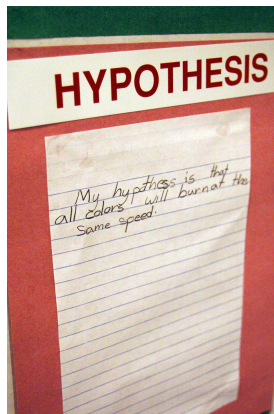 HYPOTHESIS
My hypothess is that
all colors will burn at the
same speed.